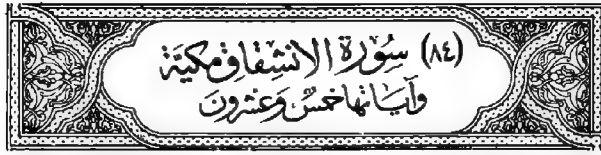 (٨٤) سُورَة الانشِقاقِ مَكيَّة
وَآيَاتهَا خمسٌ وَعشرُونَ